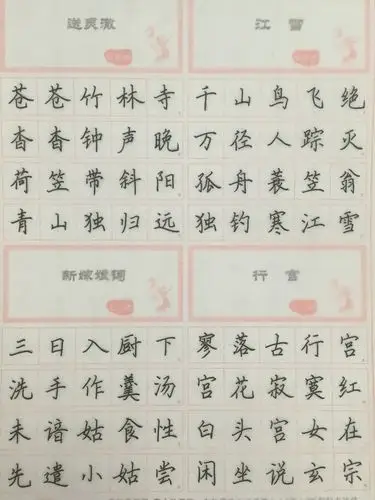 送灵澈
苍苍竹林寺
杳杳钟声晚
荷笠带斜阳
青山独归远
江雪
千山鸟飞绝
万径人踪灭
孤舟蓑笠翁
独钓寒江雪
新嫁娘词
三日入厨下
洗手作羹汤
未谙姑食性
先遣小姑尝
行宫
寥落古行宫
宫花寂寞红
白头宫女在
闲坐说玄宗